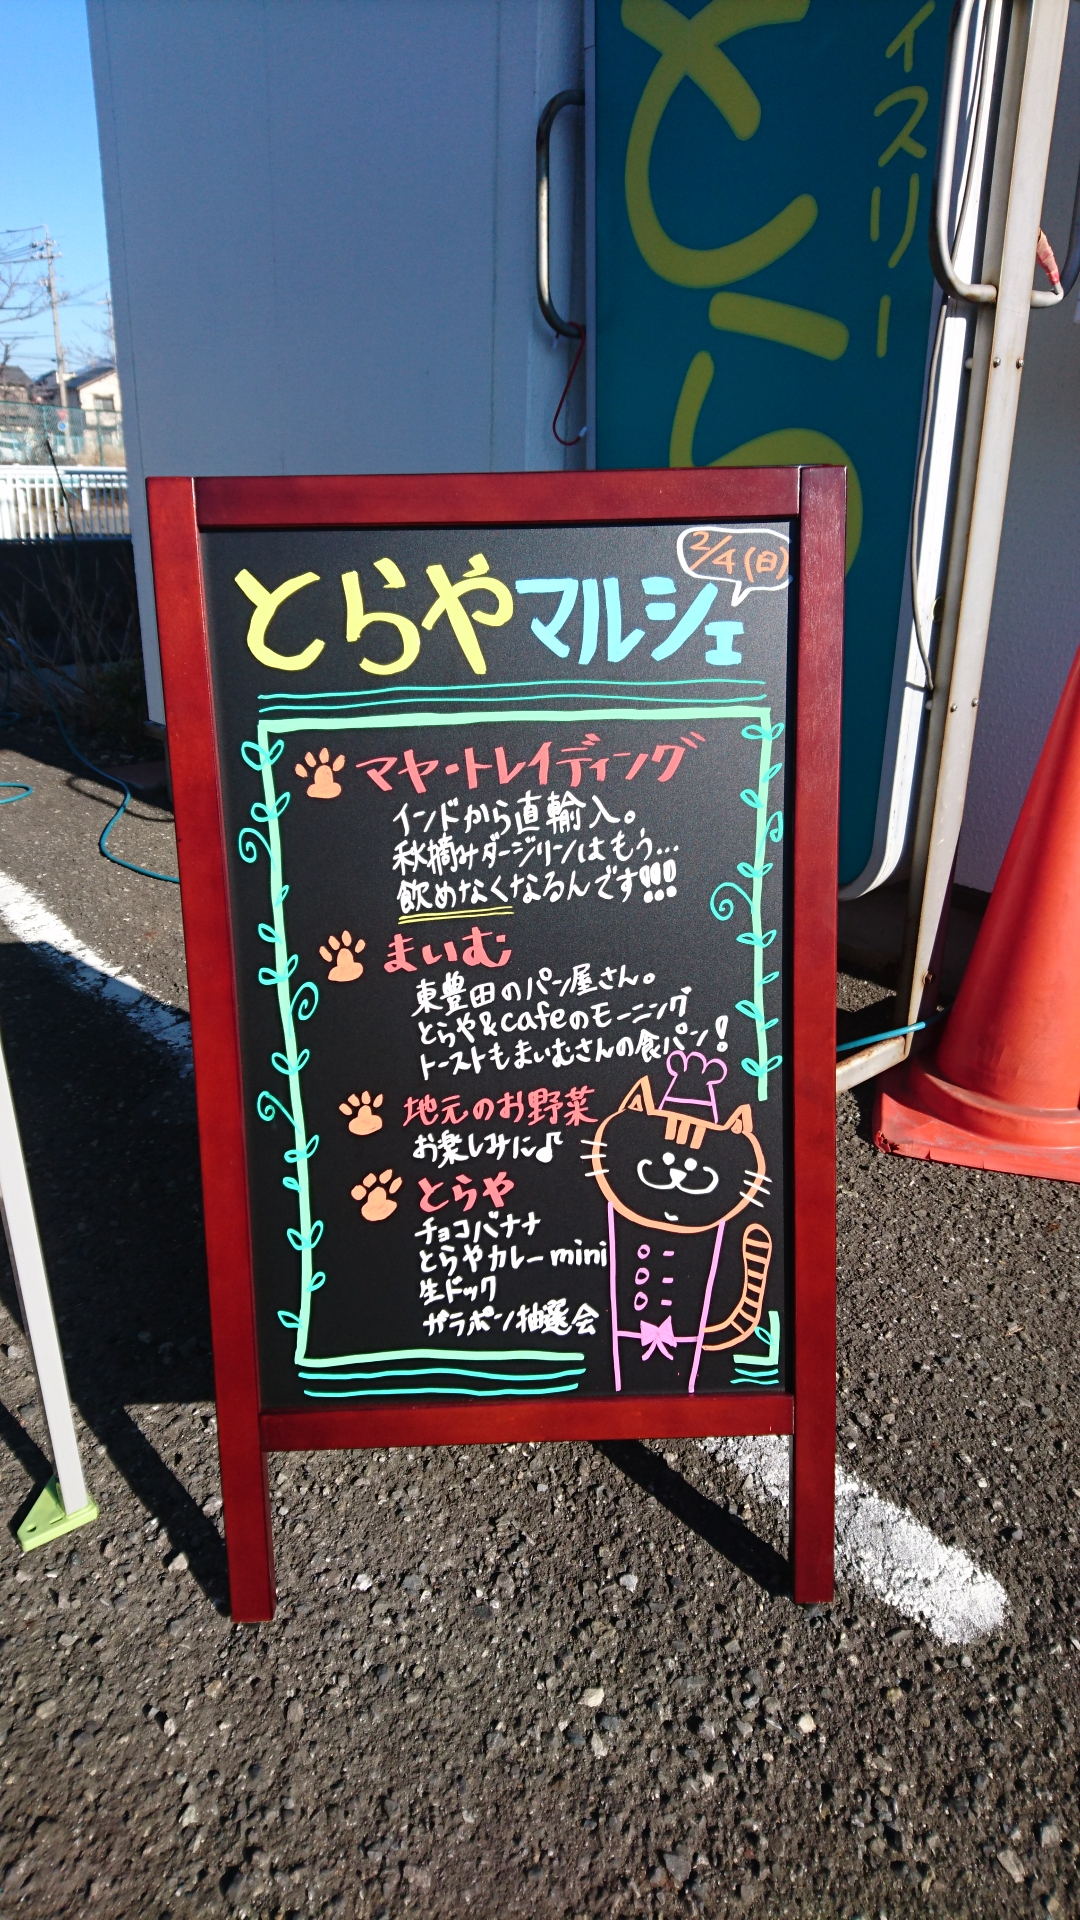 イスリー
とら
2/4(日)
とらやマルシェ
マヤ・トレイディング
インドから直輸入。
秋摘みダージリンはもう…
飲めなくなるんです!!!
まいむ
東豊田のパン屋さん。
とらや&cafeのモーニング
トーストもまいむさんの食パン!
地元のお野菜
お楽しみに♪
とらや
チョコバナナ
とらやカレーmini
生ドック
ガラポン抽選会